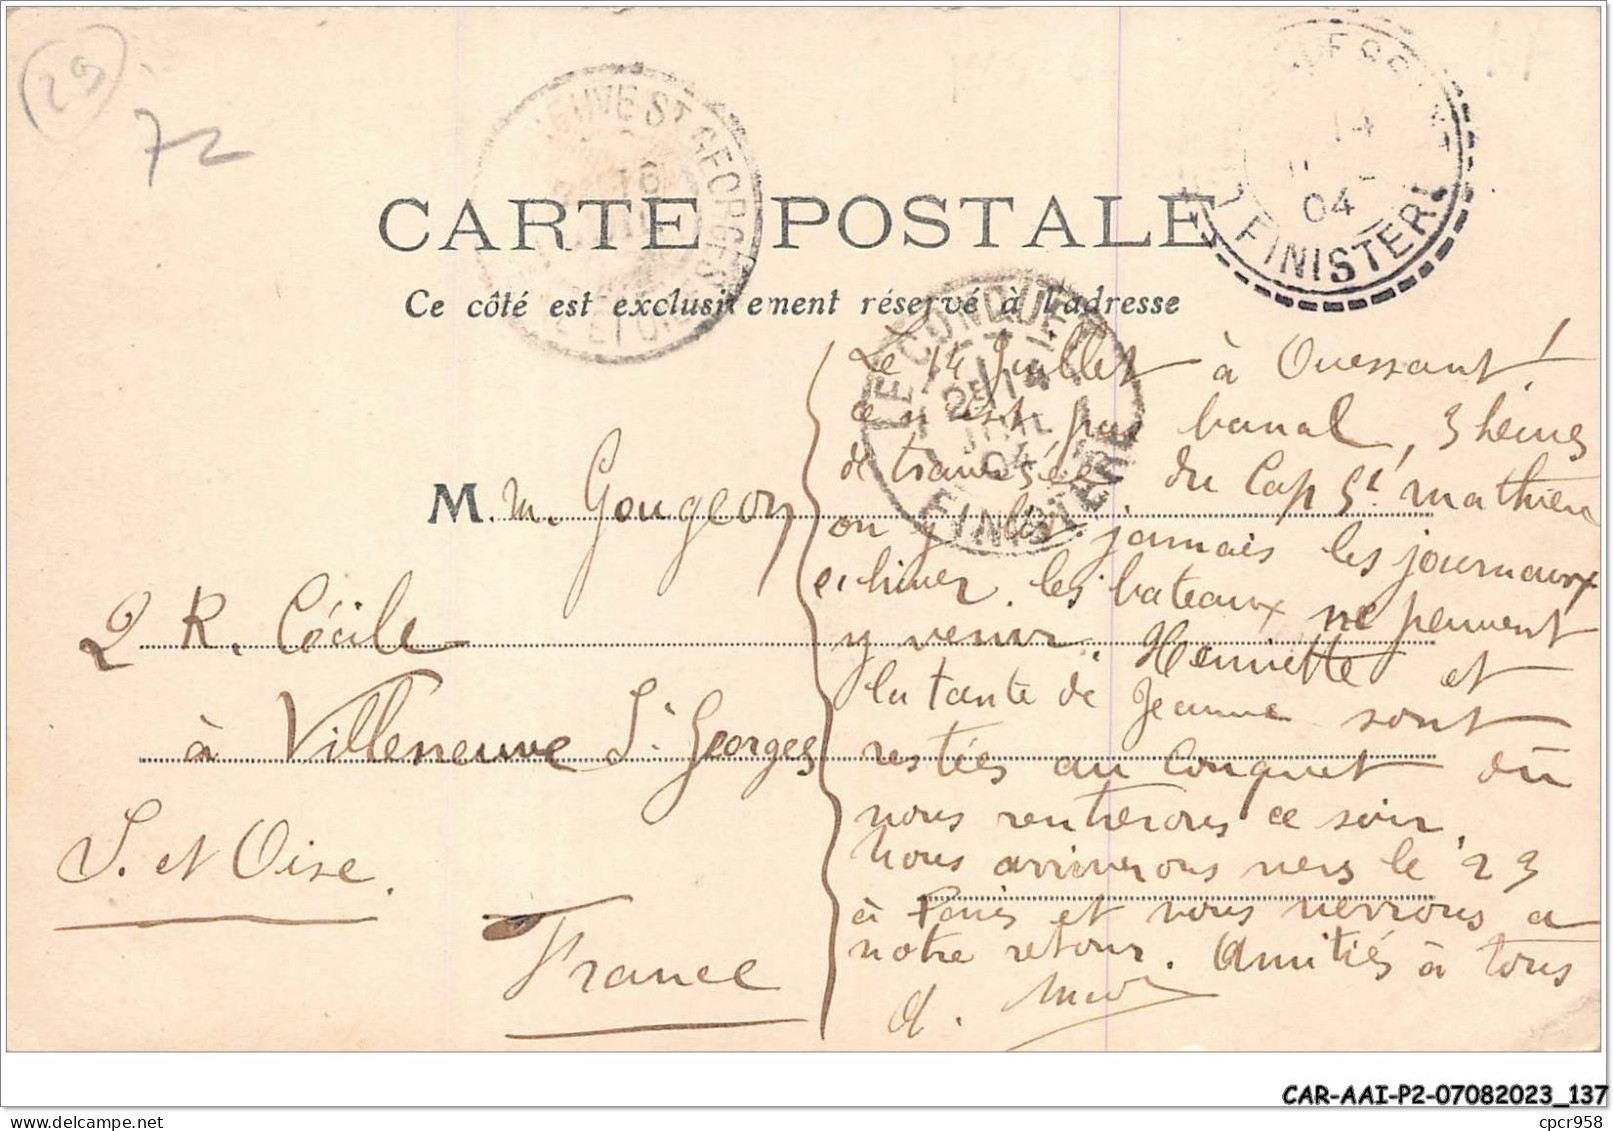 29
72
CARTE POSTALE
Ce côté est exclusivement réservé à l'adresse
EUVE ST GEORGES
16
ET OISE
OUESS
14
04
FINISTERE
LE CONQUET
25 14
JUIL
04
FINISTERE
M. m. Gougeon
2 R. Cécile
à Villeneuve St Georges
S. et Oise.
France
Le 14 Juillet à Ouessant!
ce n'est pas banal, 3 heures
de traversée du Cap St Mathieu
on y lit jamais les journaux
l'hiver. les bateaux ne peuvent
y venir. Henriette et
la tante de Jeanne sont
restées au Conquet où
nous rentrerons ce soir.
Nous arriverons vers le 23
à Paris et nous verrons a
notre retour. Amitiés à tous
CAR-AAI-P2-07082023_137
cpcr958